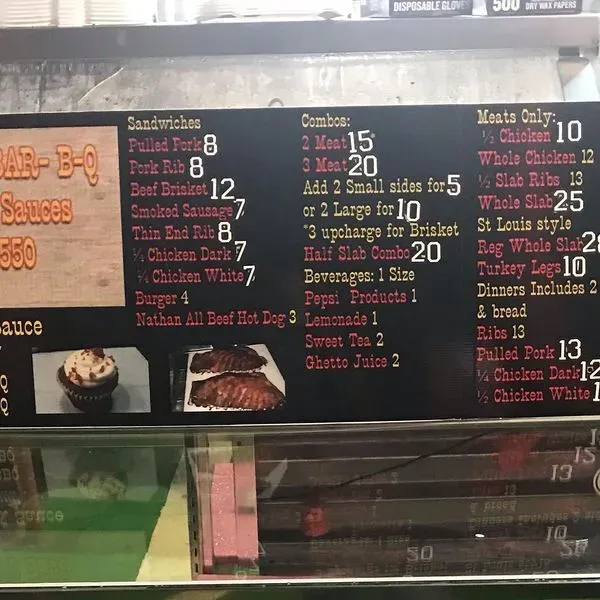 DISPOSABLE GLOVE
500 DRY WAX PAPERS
BAR- B-Q
Sauces
550
Sauce
Q
Q
Sandwiches
Pulled Pork 8
Pork Rib 8
Beef Brisket 12
Smoked Sausage 7
Thin End Rib 8
¼ Chicken Dark 7
¼ Chicken White 7
Burger 4
Nathan All Beef Hot Dog 3
Combos:
2 Meat 15
3 Meat 20
Add 2 Small sides for 5
or 2 Large for 10
*3 upcharge for Brisket
Half Slab Combo 20
Beverages: 1 Size
Pepsi Products 1
Lemonade 1
Sweet Tea 2
Ghetto Juice 2
Meats Only:
½ Chicken 10
Whole Chicken 12
½ Slab Ribs 13
Whole Slab 25
St Louis style
Reg Whole Slab
Turkey Legs 10
Dinners Includes 2
& bread
Ribs 13
Pulled Pork 13
¼ Chicken Dark 12
½ Chicken White